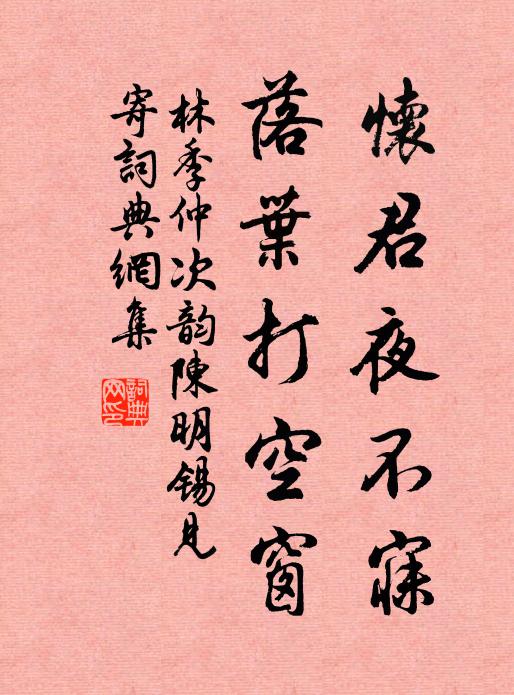 懷君夜不寐
落葉打空窗
林季仲次韵陳明錫見
寄詞典網集
詞典
网印